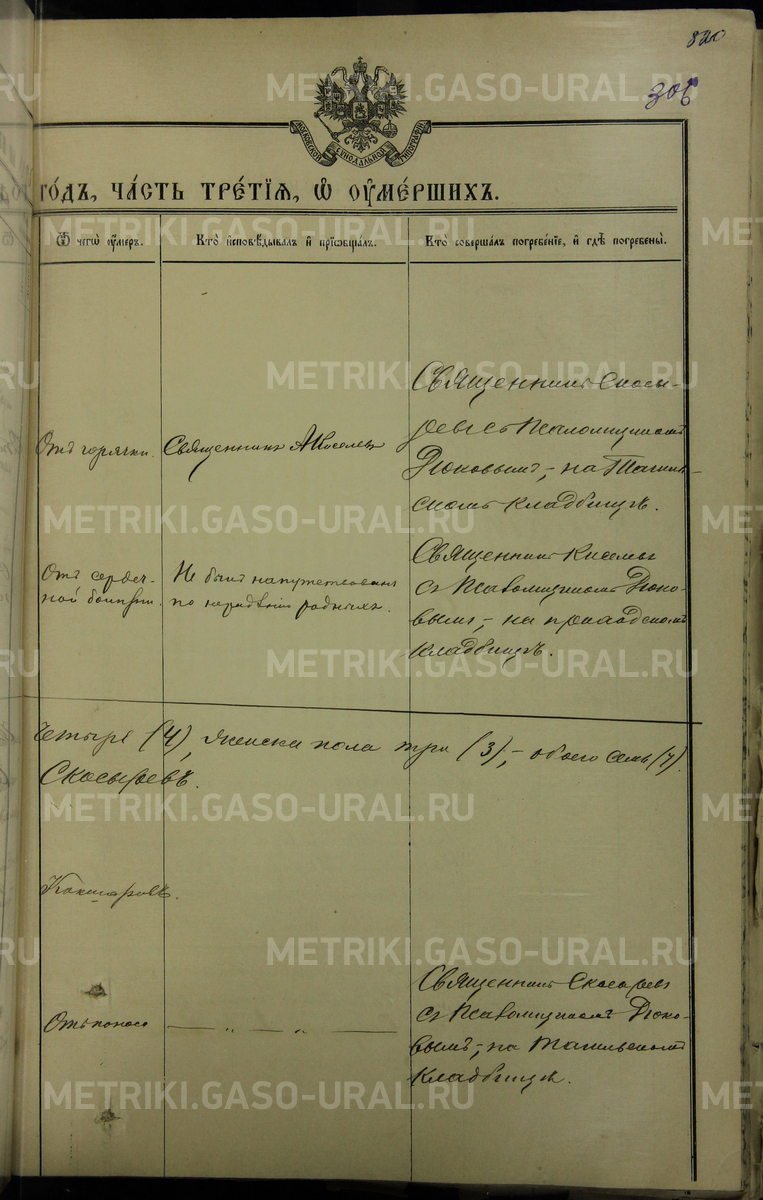 820
306
МОСКОВСКОЙ СѴНОДАЛЬНОЙ ТИПОГРАФІИ
ГО́ДЪ, ЧА́СТЬ ТРЕ́ТІѦ, Ѡ҆ ОУ҆МЕ́РШИХЪ.
Ѿ чегѡ̀ оу҆́меръ.
Кто̀ и҆сповѣ́дывалъ и҆ прїѡбща́лъ.
Кто̀ соверша́лъ погребе́нїе, и҆ гдѣ̀ погребены̀.
Отъ горячки.
Священникъ А Киселевъ
Священникъ Скосы-
ревъ съ Псаломщикомъ
Дюковымъ, на Тагиль-
скомъ кладбищѣ.
Отъ сердеч-
ной болѣзни.
Не былъ напутствованъ
по нерадѣнію родныхъ.
Священникъ Киселевъ
съ Псаломщикомъ Дюко-
вымъ, на приходскомъ
кладбищѣ.
четыре (4), женска пола три (3), обоего семь (7).
Скосыревъ.
Кокшаровъ.
Отъ поноса
— „ — „ —
Священникъ Скосыревъ
съ Псаломщикомъ Дюко-
вымъ, на Тагильскомъ
кладбищѣ.
METRIKI.GASO-URAL.RU